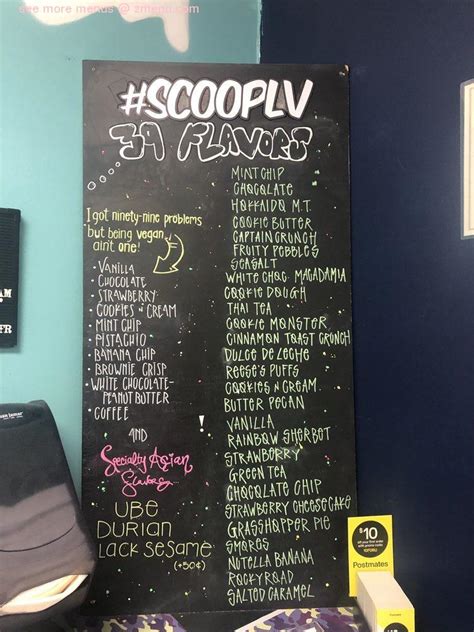 see more menus @ zmenu.com
#SCOOPLV
39 FLAVORS
I got ninety-nine problems
but being vegan
aint one!
• VANILLA
• CHOCOLATE
• STRAWBERRY
• COOKIES N' CREAM
• MINT CHIP
• PISTACHIO
• BANANA CHIP
• BROWNIE CRISP
• WHITE CHOCOLATE-
PEANUT BUTTER
• COFFEE
!
AND
Specialty Asian
Flavors
UBE
DURIAN
LACK SESAME
(+50¢)
MINT CHIP
CHOCOLATE
HOKKAIDO M.T.
COOKIE BUTTER
CAPTAIN CRUNCH
FRUITY PEBBLES
SEASALT
WHITE CHOC. MACADAMIA
COOKIE DOUGH
THAI TEA
COOKIE MONSTER
CINNAMON TOAST CRUNCH
DULCE DE LECHE
REESE'S PUFFS
COOKIES N CREAM
BUTTER PECAN
VANILLA
RAINBOW SHERBET
STRAWBERRY
GREEN TEA
CHOCOLATE CHIP
STRAWBERRY CHEESECAKE
GRASSHOPPER PIE
SMORES
NUTELLA BANANA
ROCKY ROAD
SALTED CARAMEL
AM
FR
$10
off your first order
with promo code:
Postmates